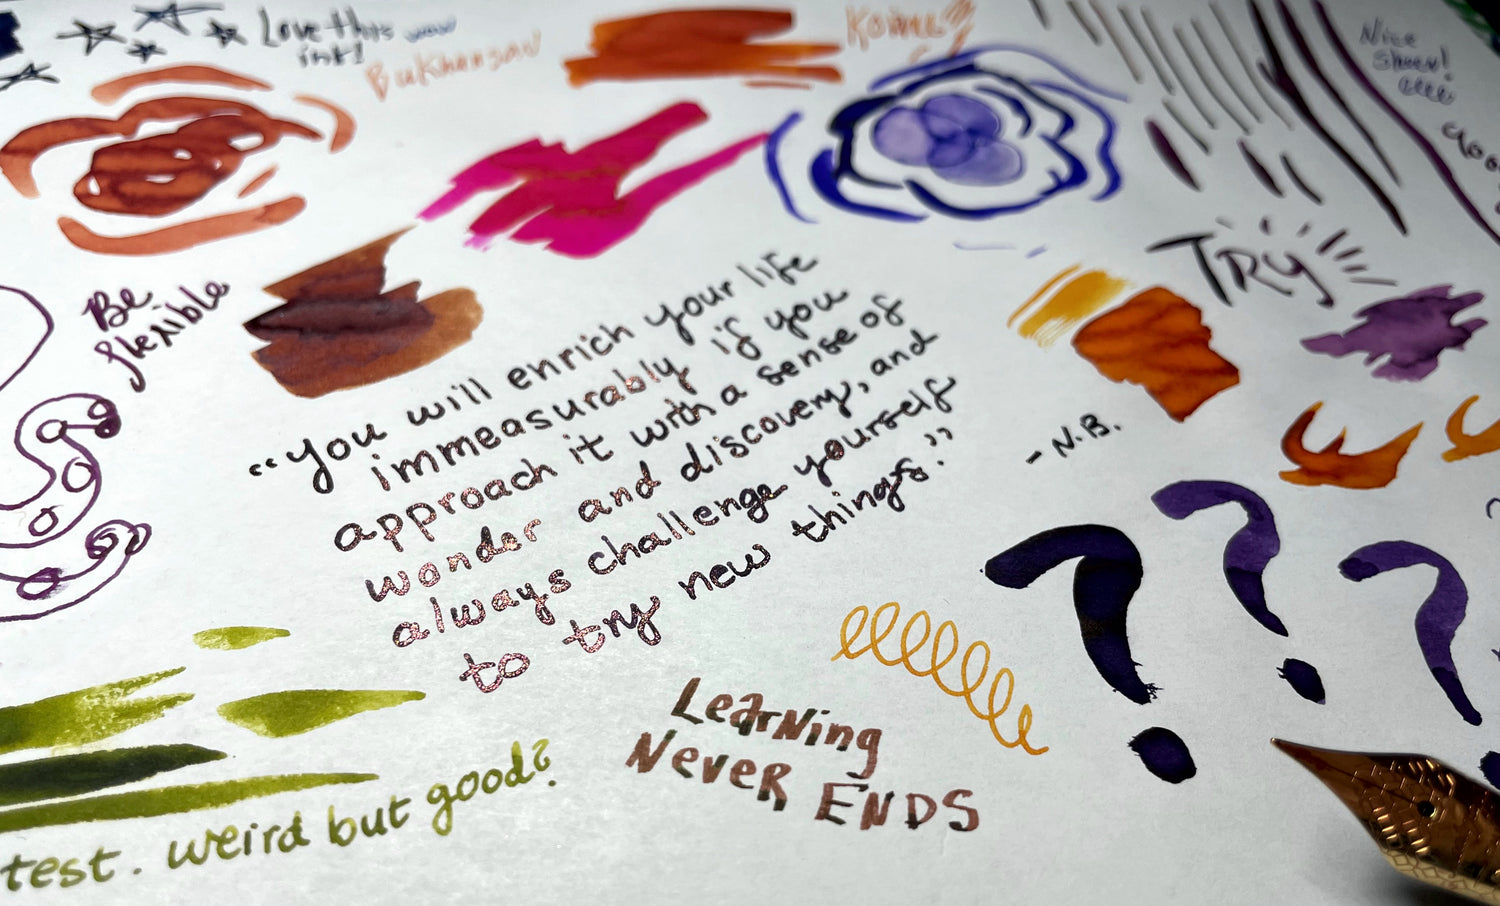 Love this
ink!
wow
Bukhansan
Nice
sheen!
Be
flexible
TRY
"you will enrich your life
immeasurably if you
approach it with a sense of
wonder and discovery, and
always challenge yourself
to try new things."
- N.B.
? ? ?
Learning
Never ENDS
test. weird but good?